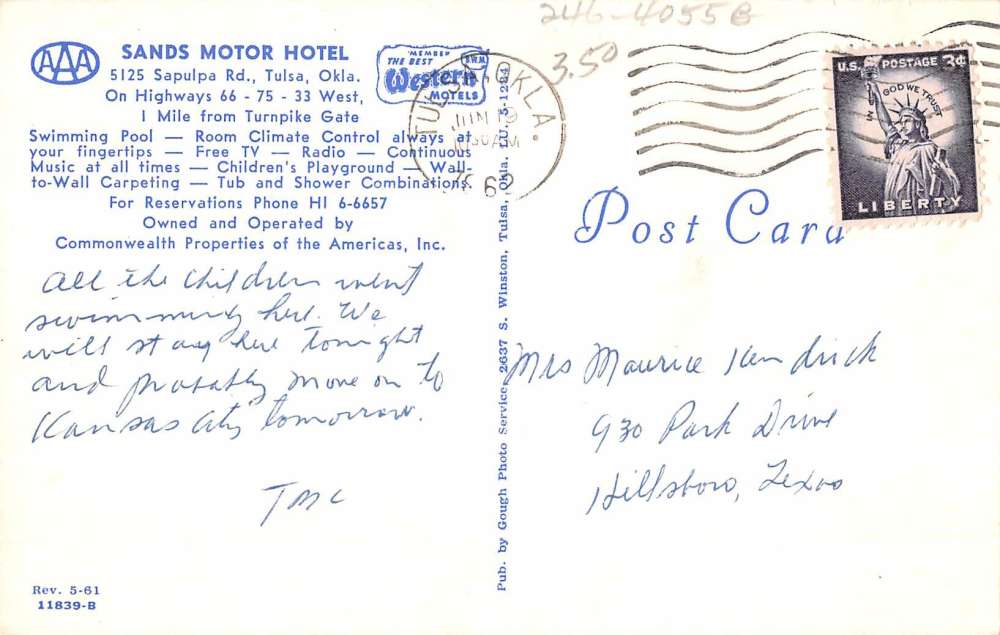 246-4055B
3.50
AAA
SANDS MOTOR HOTEL
5125 Sapulpa Rd., Tulsa, Okla.
On Highways 66 - 75 - 33 West,
1 Mile from Turnpike Gate
Swimming Pool — Room Climate Control always at
your fingertips — Free TV — Radio — Continuous
Music at all times — Children's Playground — Wall-
to-Wall Carpeting — Tub and Shower Combinations.
For Reservations Phone HI 6-6657
Owned and Operated by
Commonwealth Properties of the Americas, Inc.
MEMBER
THE BEST B.W.M.
Western
MOTELS
TULSA, OKLA.
JUN
AM
U.S. POSTAGE 3¢
IN GOD WE TRUST
LIBERTY
Post Card
All the children went
swimming here. We
will stay here tonight
and probably move on to
Kansas City tomorrow.
TMC
Mrs Maurice Kendrick
930 Park Drive
Hillsboro, Texas
Pub. by Gough Photo Service, 2637 S. Winston, Tulsa, Okla. LU
Rev. 5-61
11839-B